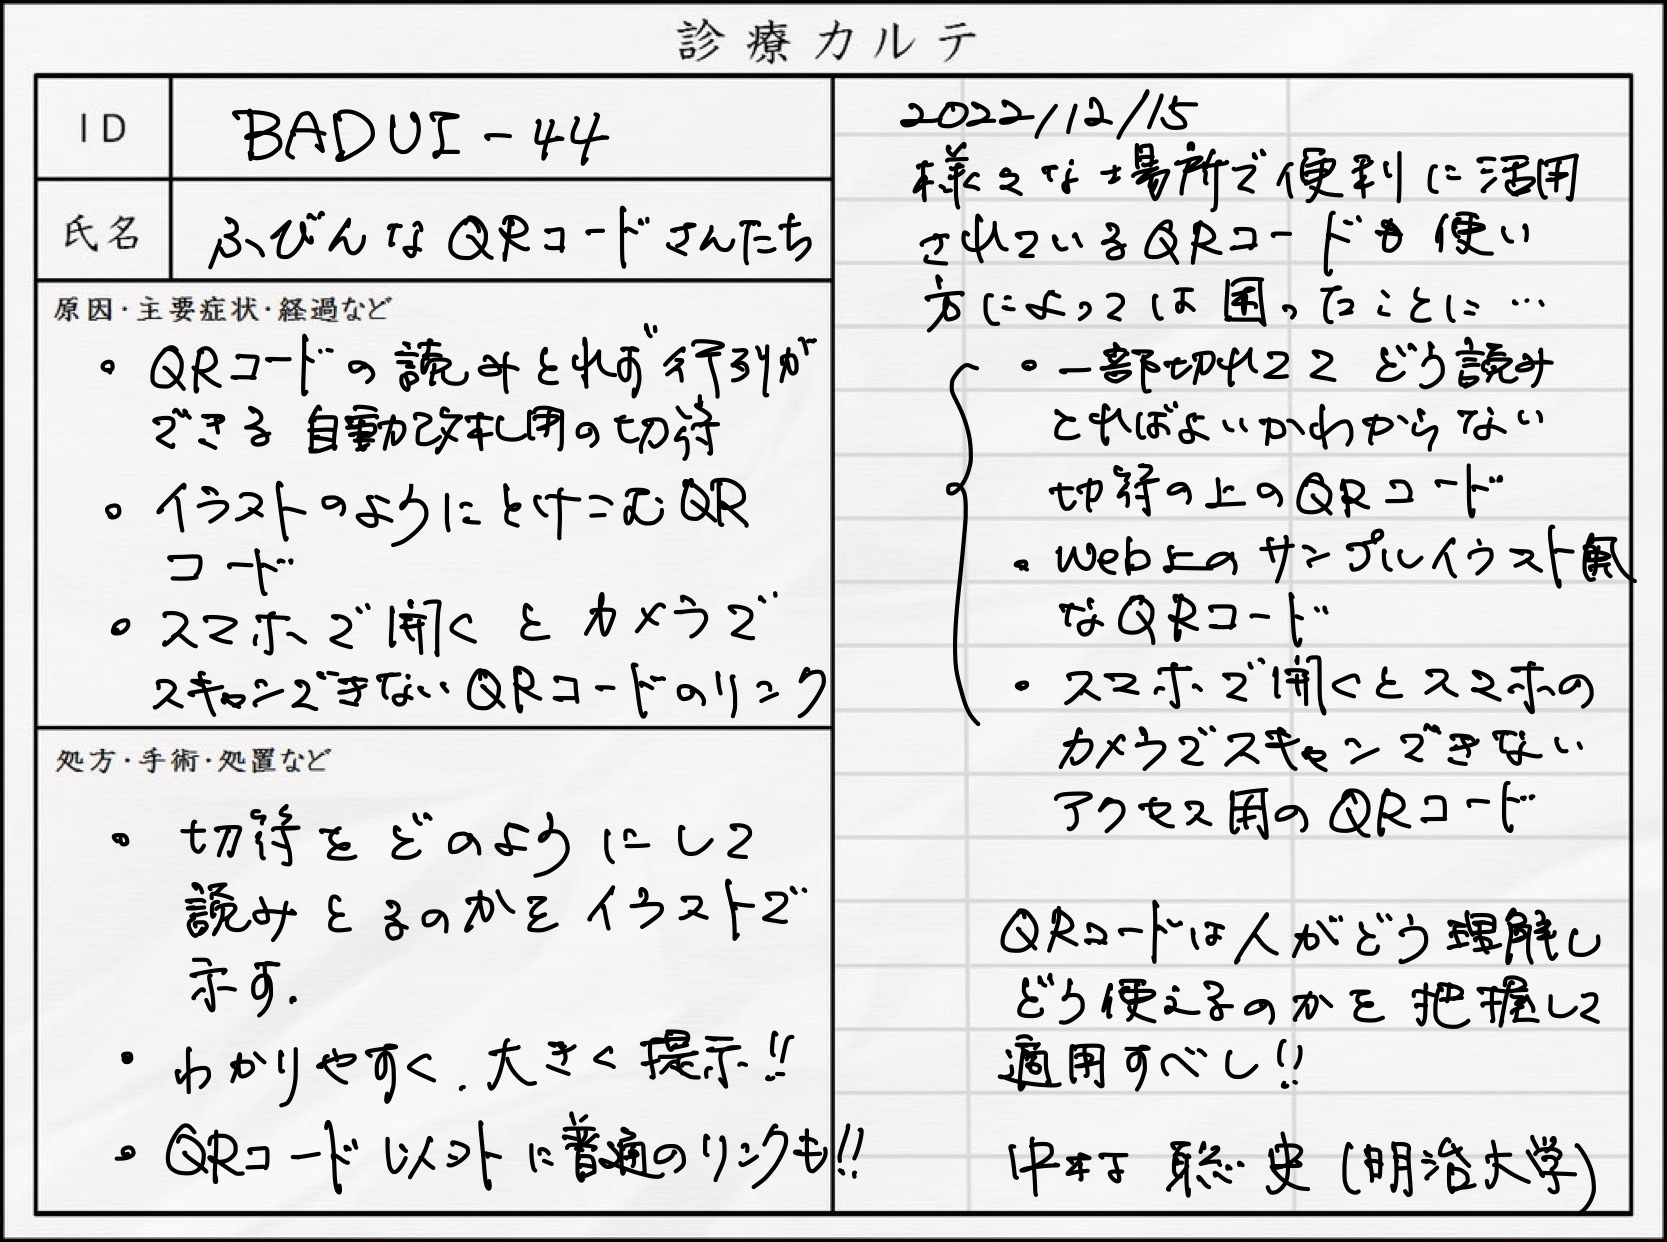 診療カルテ
ID
BADUI-44
氏名
ふびんなQRコードさんたち
原因・主要症状・経過など
・QRコードの読みとれず行列が
できる自動改札用の切符
・イラストのようにとけこむQR
コード
・スマホで開くとカメラで
スキャンできないQRコードのリンク
処方・手術・処置など
・切符をどのようにして
読みとるのかをイラストで
示す.
・わかりやすく.大きく提示!!
・QRコード以外に普通のリンクも!!
2022/12/15
様々な場所で便利に活用
されているQRコードも使い
方によっては困ったことに…
・一部切れてて どう読み
とればよいかわからない
切符の上のQRコード
・Web上のサンプルイラスト風
なQRコード
・スマホで開くとスマホの
カメラでスキャンできない
アクセス用のQRコード
QRコードは人がどう理解し
どう使えるのかを把握して
適用すべし!!
中村 聡史(明治大学)